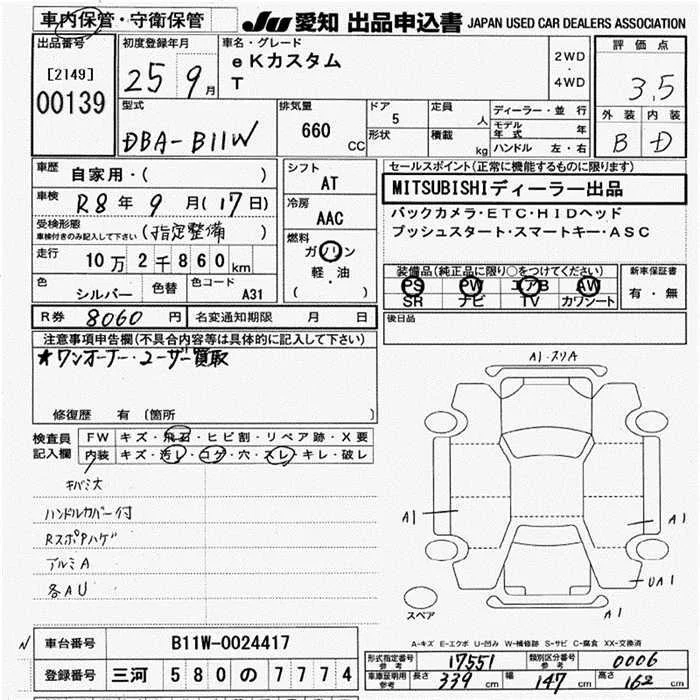 車内保管・守衛保管
JU 愛知 出品申込書 JAPAN USED CAR DEALERS ASSOCIATION
出品番号
[2149]
00139
初度登録年月
25年9月
車名・グレード
eKカスタム
T
2WD
・
4WD
評価点
3.5
外装 内装
B D
型式
DBA-B11W
排気量
660 CC
ドア
5
形状
定員
人
積載
kg
ディーラー・並行
モデル年式 年
ハンドル 左・右
車歴
自家用・( )
車検
R8年9月(17日)
受検形態
車検付きのみ記入して下さい (指定整備)
走行
10万2千860km
色
シルバー
色替
色コード
A31
シフト
AT
冷房
AAC
燃料
ガソリン
軽・油
( )
セールスポイント(正常に機能するものに限ります)
MITSUBISHIディーラー出品
バックカメラ・ETC・HIDヘッド
プッシュスタート・スマートキー・ASC
装備品(純正品に限り○をつけてください)
PS PW エアB AW
SR ナビ TV カワシート
新車保証書
有・無
R券 8060円 名変通知期限 月 日
後日品
注意事項申告欄(不具合内容等は具体的に記入して下さい)
★ワンオーナー・ユーザー買取
修復歴 有(箇所 )
検査員記入欄
FW キズ・飛石・ヒビ割・リペア跡・X要
内装 キズ・汚レ・コゲ・穴・スレ・キレ・破レ
キバミ大
ハンドルカバー付
RスポPハゲ
アルミA
各AU
A1・スリA
A1
A1
UA1
A1
スペア
A-キズ E-エクボ U-凹み W-補修跡 S-サビ C-腐食 XX-交換済
車台番号 B11W-0024417
登録番号 三河 580 の 7774
形式指定番号 参考 17551 類別区分番号 参考 0006
車庫証明用 参考 長さ 339 cm 幅 147 cm 高さ 162 cm